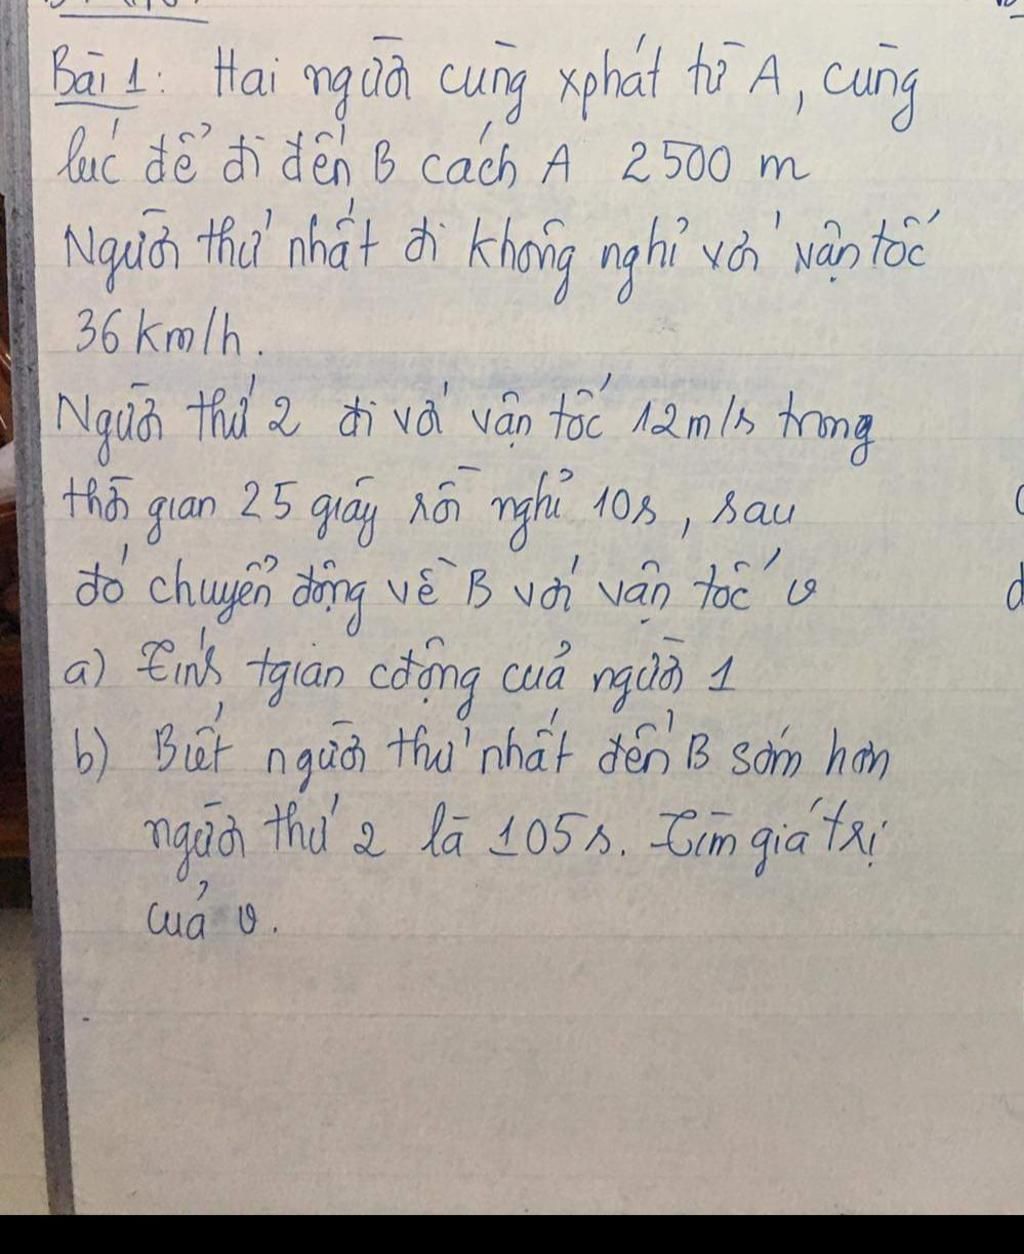 Bài 1: Hai người cùng xphát từ A, cùng
lúc để đi đến B cách A 2500 m
Người thứ nhất đi không nghỉ với vận tốc
36 km/h.
Người thứ 2 đi với vận tốc 12m/s trong
thời gian 25 giây rồi nghỉ 10s, sau
đó chuyển động về B với vận tốc v
a) Tính tgian cđộng của người 1
b) Biết người thứ nhất đến B sớm hơn
người thứ 2 là 105s. Tìm giá trị
của v.